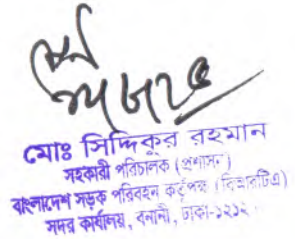 মোঃ সিদ্দিকুর রহমান
সহকারী পরিচালক (প্রশাসন)
বাংলাদেশ সড়ক পরিবহন কর্তৃপক্ষ (বিআরটিএ)
সদর কার্যালয়, বনানী, ঢাকা-১২১২